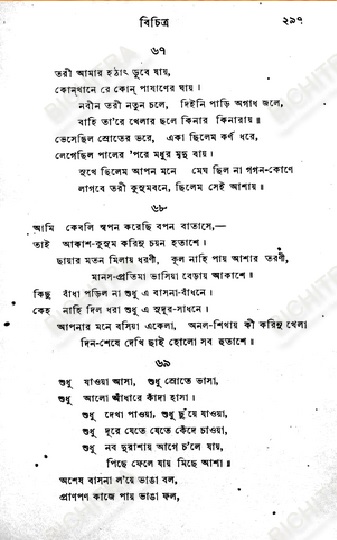 বিচিত্র ২৯৭
৬৭
তরী আমার হঠাৎ ডুবে যায়,
কোন্‌খানে রে কোন্ পাষাণের ঘায়।
নবীন তরী নতুন চলে, দিইনি পাড়ি অগাধ জলে,
বাহি তা'রে খেলার ছলে কিনার কিনারায়॥
ভেসেছিল স্রোতের ভরে, একা ছিলেম কর্ণ ধরে,
লেগেছিল পালের 'পরে মধুর মৃদু বায়।
সুখে ছিলেম আপন মনে মেঘ ছিল না গগন-কোণে
লাগবে তরী কুসুমবনে, ছিলেম সেই আশায়॥
৬৮
আমি কেবলি স্বপন করেছি বপন বাতাসে,—
তাই আকাশ-কুসুম করিনু চয়ন হতাশে।
ছায়ার মতন মিলায় ধরণী, কূল নাহি পায় আশার তরণী,
মানস-প্রতিমা ভাসিয়া বেড়ায় আকাশে॥
কিছু বাঁধা পড়িল না শুধু এ বাসনা-বাঁধনে।
কেহ নাহি দিল ধরা শুধু এ সুদূর-সাধনে।
আপনার মনে বসিয়া একেলা, অনল-শিখায় কী করিনু খেলা
দিন-শেষে দেখি ছাই হোলো সব হুতাশে॥
৬৯
শুধু যাওয়া আসা, শুধু স্রোতে ভাসা,
শুধু আলো আঁধারে কাঁদা হাসা।
শুধু দেখা পাওয়া, শুধু ছুঁয়ে যাওয়া,
শুধু দূরে যেতে যেতে কেঁদে চাওয়া,
শুধু নব দুরাশায় আগে চ'লে যায়,
পিছে ফেলে যায় মিছে আশা॥
অশেষ বাসনা ল'য়ে ভাঙা বল,
প্রাণপণ কাজে পায় ভাঙা ফল,
BICHITRA